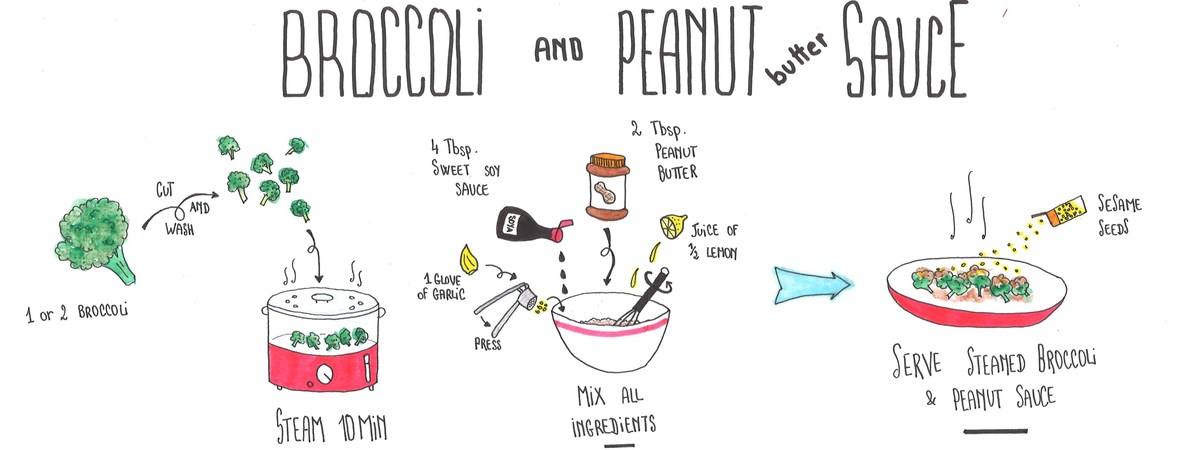 BROCCOLi AND PEANUT butter SAUCE
1 or 2 BROCCOLi
CUT
AND
WASH
STEAM 10 MiN
4 Tbsp.
SWEET SOY
SAUCE
SOYA
2 Tbsp.
PEANUT
BUTTER
JUiCE OF
1/2 LEMON
1 GLOVE
OF GARLiC
PRESS
MiX ALL
iNGREDiENTS
SESAME
SEEDS
SERVE STEAMED BROCCOLi
& PEANUT SAUCE